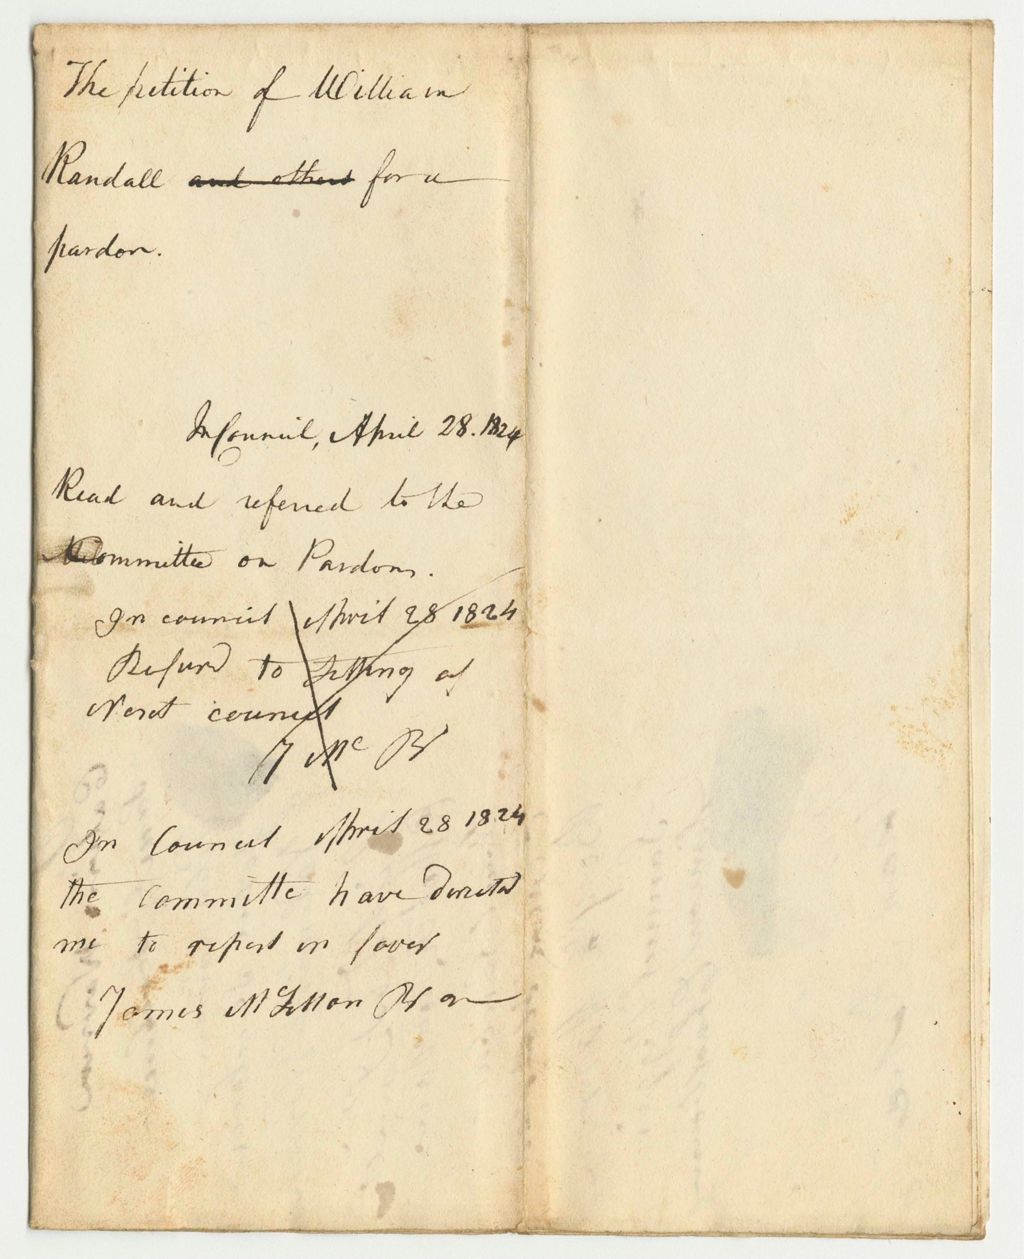 The petition of William
Randall and others for a
pardon.
In Council, April 28. 1824
Read and referred to the
Committee on Pardons.
In council April 28 1824
Refurd to Sitting of
Next council
J Mc
In Council April 28 1824
the Committe have Directed
me to report in faver
James